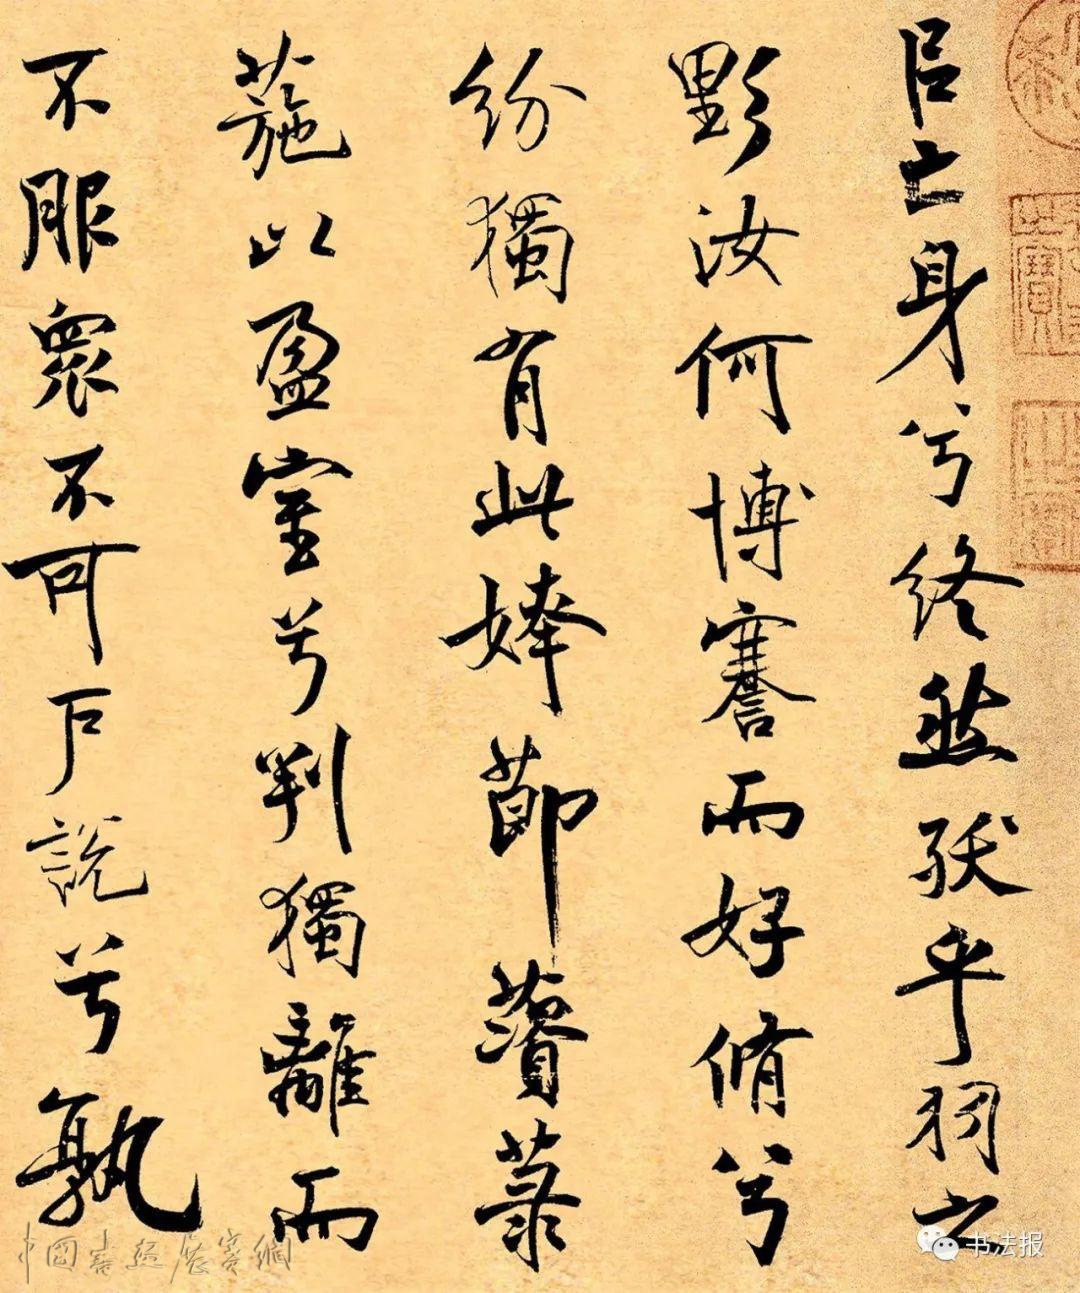 㠯亡身兮終然殀乎羽之
野汝何博謇而好脩兮
紛獨有此姱節薋菉
葹以盈室兮判獨離而
不服衆不可戶說兮孰
书法报
中國書法展賽網